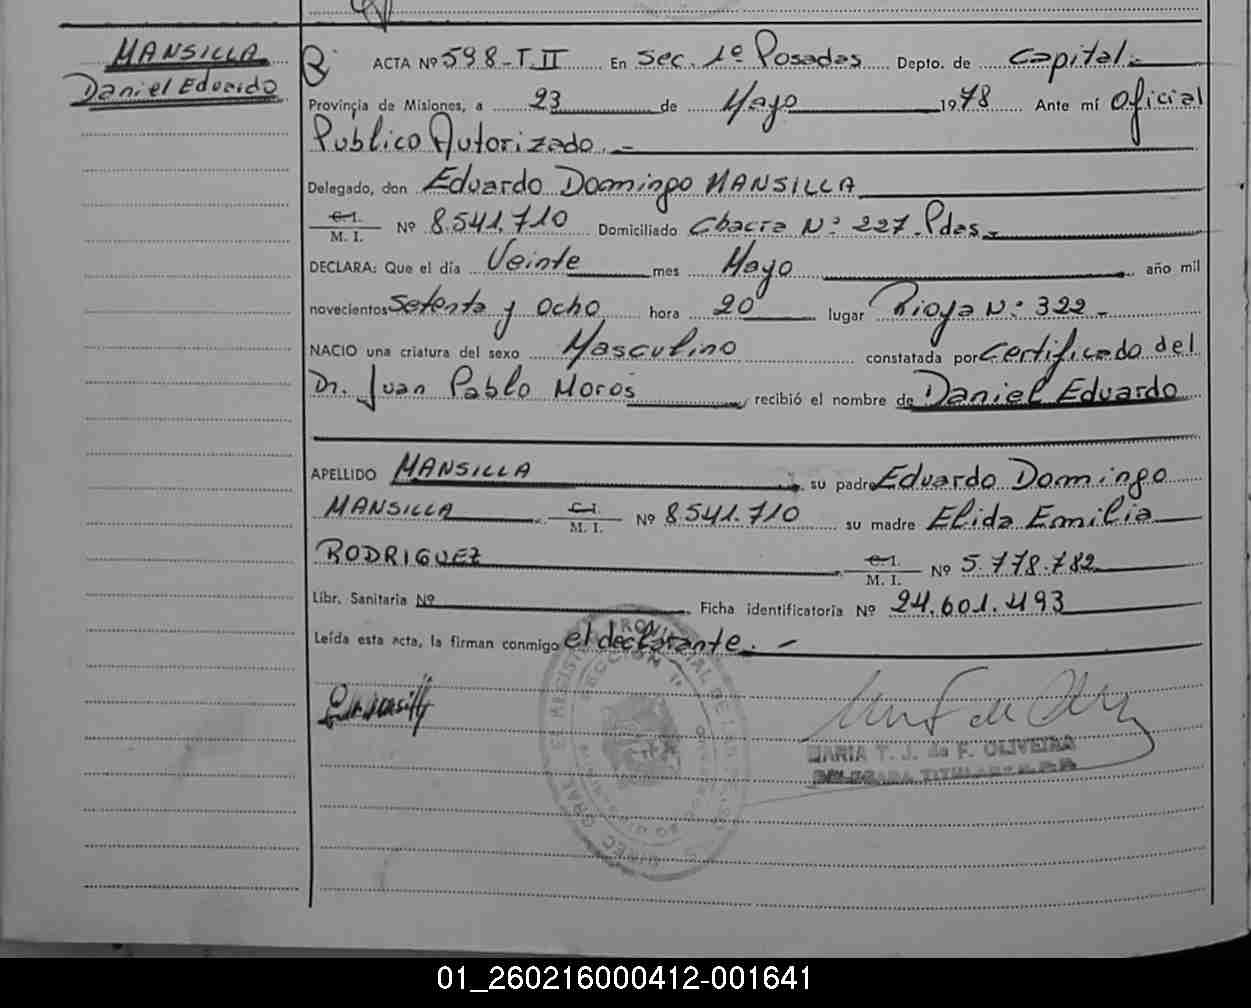 MANSILLA
Daniel Eduardo
ACTA Nº 598-T.II En Sec. 1º Posadas Depto. de Capital.-
Provincia de Misiones, a 23 de Mayo 1978 Ante mí Oficial
Público Autorizado.-
Delegado, don Eduardo Domingo MANSILLA
C.I.
M. I. Nº 8.541.710 Domiciliado Chacra Nº 227. Pdas.-
DECLARA: Que el día Veinte mes Mayo año mil
novecientos Setenta y Ocho hora 20 lugar Rioja Nº: 322.-
NACIO una criatura del sexo Masculino constatada por Certificado del
Dr. Juan Pablo Moros recibió el nombre de Daniel Eduardo
APELLIDO MANSILLA su padre Eduardo Domingo
MANSILLA C.I.
M. I. Nº 8.541.710 su madre Elida Emilia
RODRIGUEZ C.I.
M. I. Nº 5.778.782
Libr. Sanitaria Nº Ficha identificatoria Nº 24.601.493
Leída esta acta, la firman conmigo el declarante.-
MARIA T. J. de F. OLIVEIRA
DELEGADA TITULAR
SECCION 1ª
01_260216000412-001641